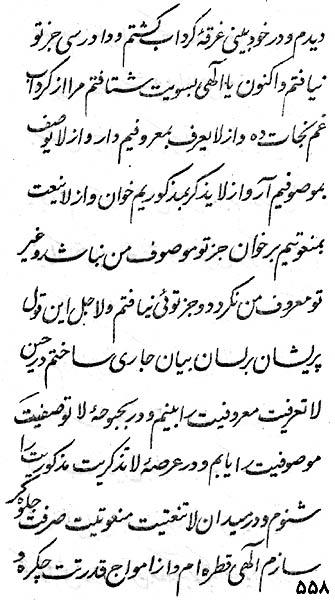 دیدم و در خود بینی غرقهٔ گرداب گشتم و دادرسی جز تو
نیافتم و اکنون یا الهی بسویت شتافتم مرا از گرداب
غم نجات ده و از لایعرف بمعروفیم دار و از لایوصف
بموصوفیم آر و از لایذکر بمذکوریم خوان و از لاینعت
بمنعوتیم بر خوان جز تو موصوف من نباشد و غیر
تو معروف من نگردد و جز توئی نیافتم و لاجل این قول
پریشان بر لسان بیان جاری ساختم در حین
لاتعرفیت معروفیت را بینم و در بحبوحهٔ لاتوصفیت
موصوفیت را یابم و در عرصهٔ لاتذکریت مذکوریت را
شنوم و در میدان لاتنعتیت منعوتیت صرفت جلوه‌گر
سازم الهی قطره‌ام و از امواج قدرتت چکره و
۵۵۸